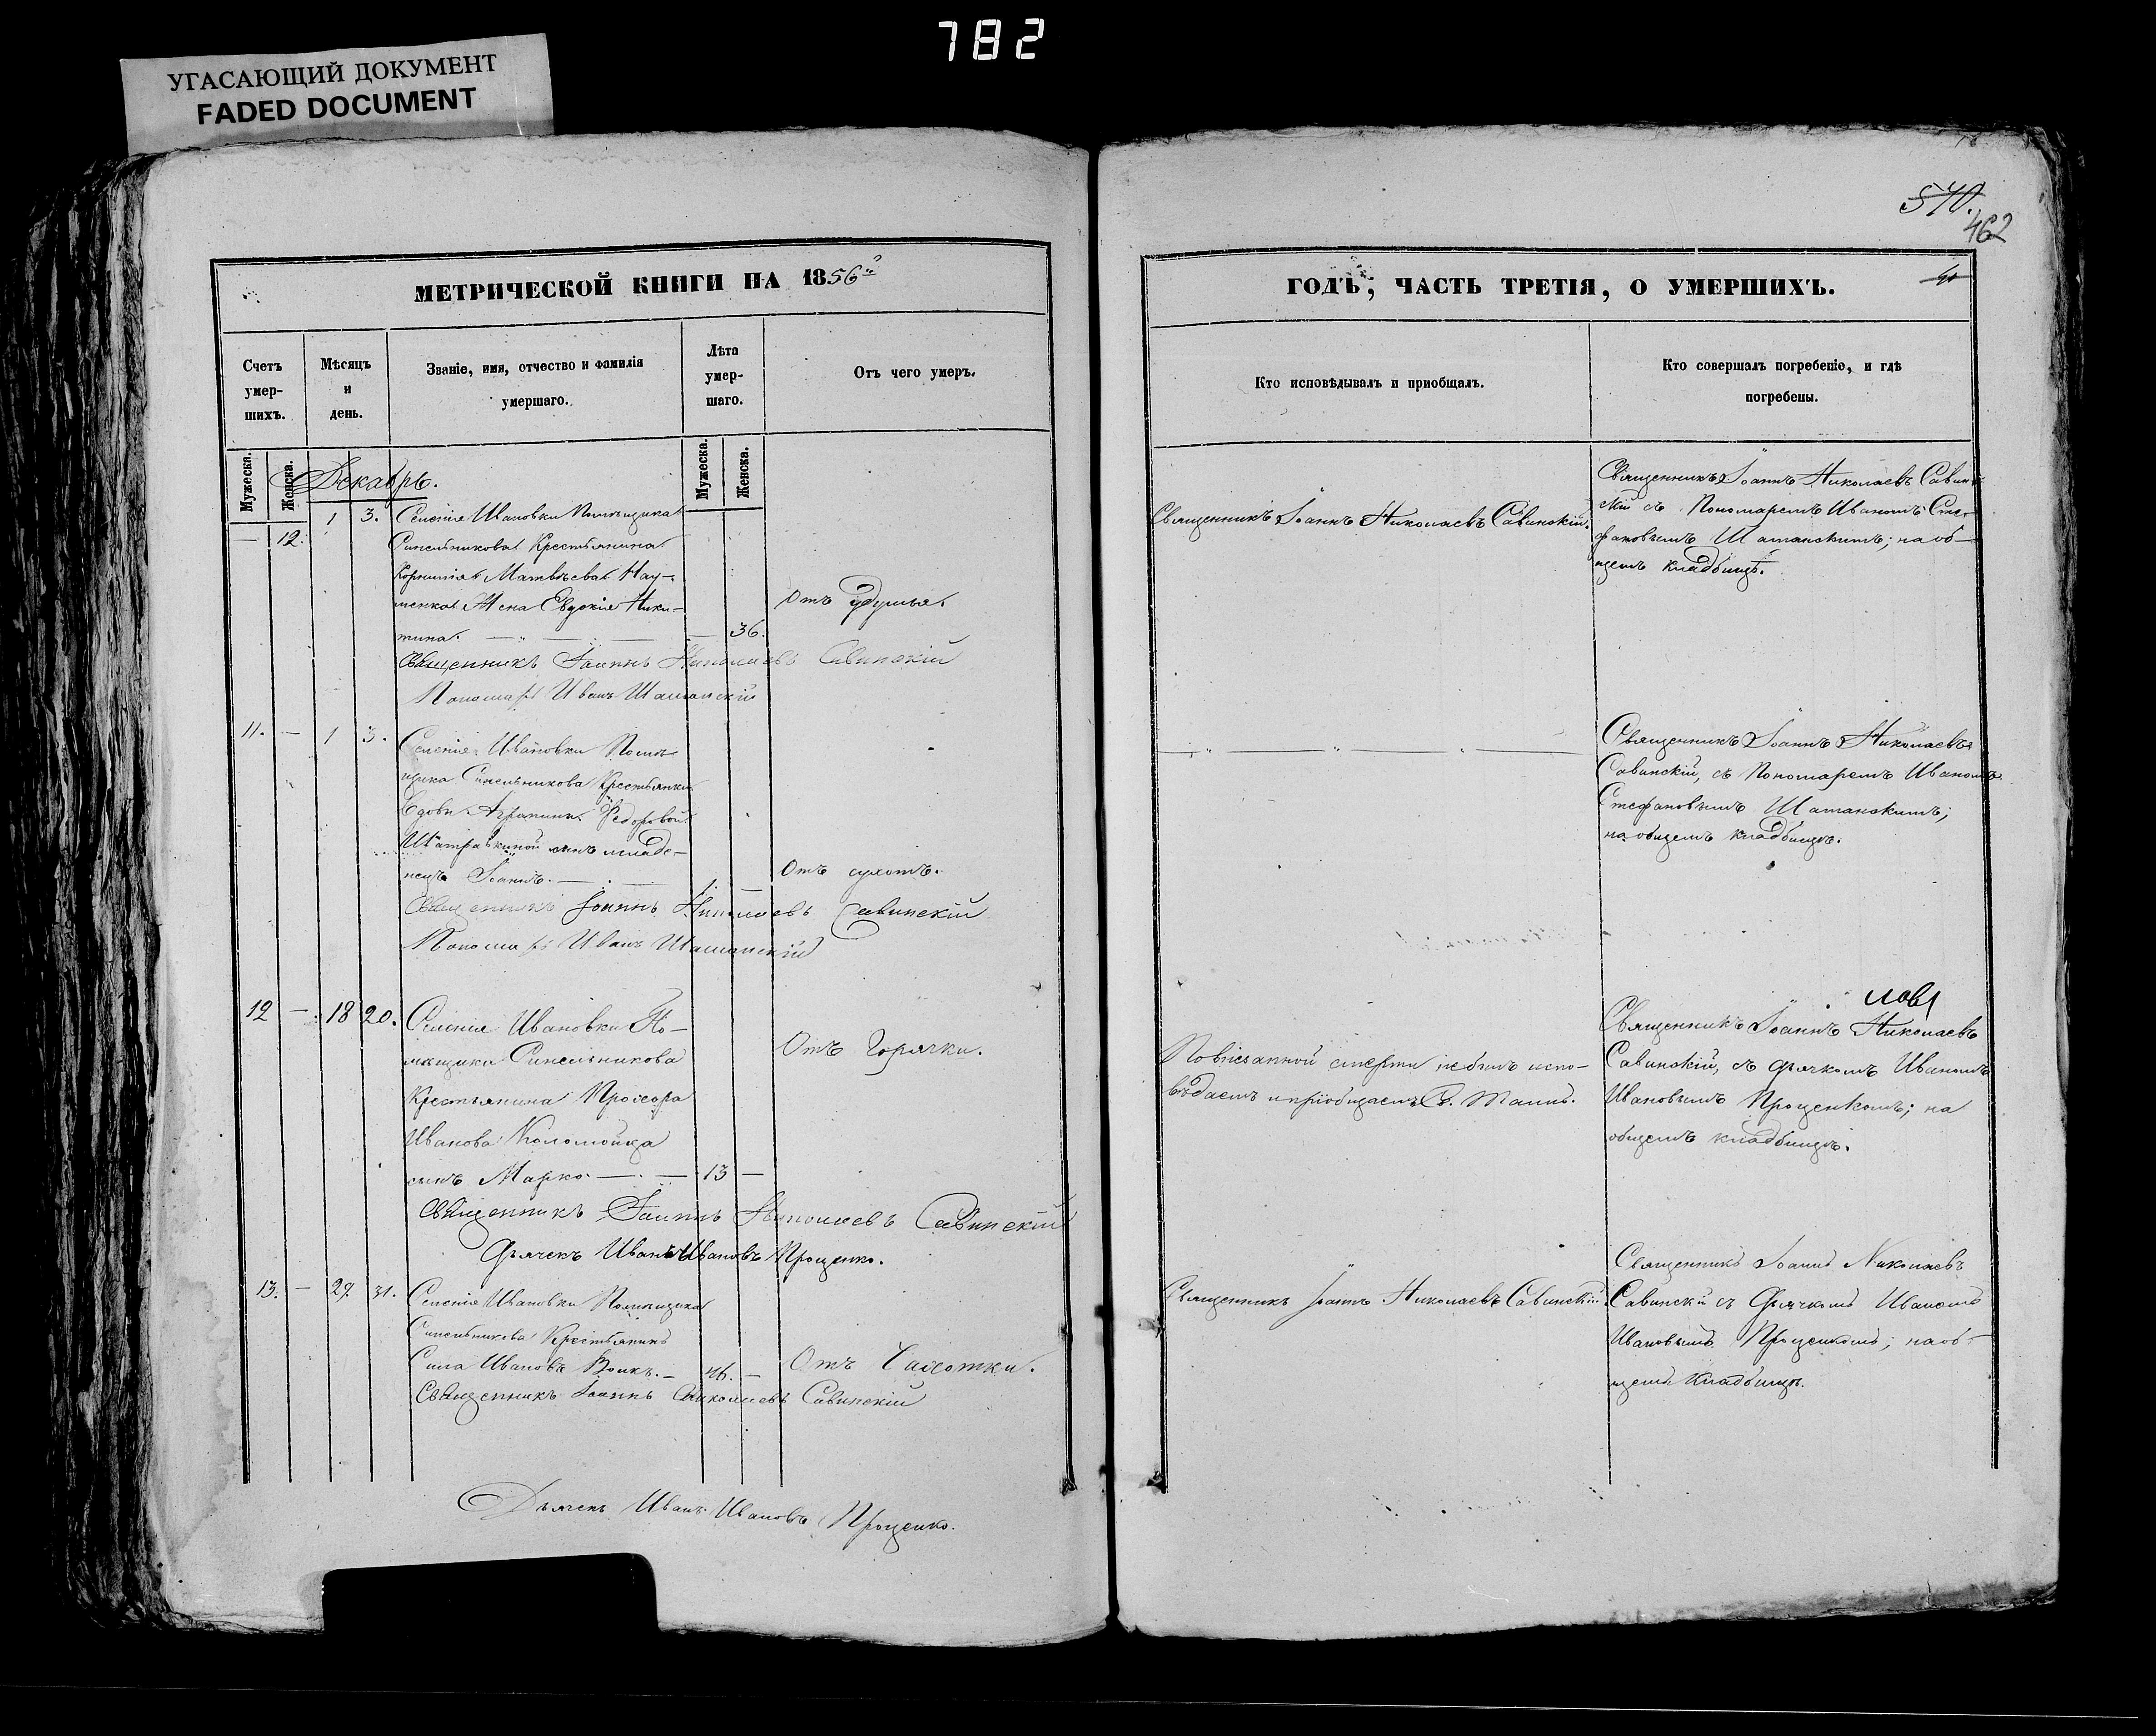 782
УГАСАЮЩИЙ ДОКУМЕНТ
FADED DOCUMENT
570.
462
МЕТРИЧЕСКОЙ КНИГИ НА 1856й
Счетъ умер-шихъ.
Мѣсяцъ и день.
Званіе, имя, отчество и фамилія умершаго.
Лѣта умер-шаго.
Отъ чего умеръ.
Мужеска.
Женска.
Мужеска.
Женска.
Декабрь.
— 12. 1 3. Селенія Ивановки Помѣщика
Синельникова Крестьянина
Корнилія Матвѣева Нау-
менка Жена Евдокія Ники-
тина. — 36.
Отъ удушья.
Священникъ Іоаннъ Николаевъ Савинскій
Пономарь Иванъ Шатанскій
11. — 1 3. Селенія Ивановки Помѣ-
щика Синельникова Крестьянки
Вдовы Агрипины Ѳедоровой
сынъ младе-
нецъ Іоаннъ. — 1. —
Отъ сухотъ.
Священникъ Іоаннъ Николаевъ Савинскій
Пономарь Иванъ Шатанскій
12 — 18 20. Селенія Ивановки По-
мѣщика Синельникова
Крестьянина Прохора
Иванова Коломойца
сынъ Марко — 13 —
Отъ Горячки.
Священникъ Іоаннъ Николаевъ Савинскій
Дьячекъ Иванъ Ивановъ Проценко.
13. — 29. 31. Селенія Ивановки Помѣщика
Синельникова Крестьянинъ
Сила Ивановъ Вовкъ. — 46. —
Отъ Чахотки.
Священникъ Іоаннъ Николаевъ Савинскій
Дьячекъ Иванъ Ивановъ Проценко.
ГОДЪ, ЧАСТЬ ТРЕТІЯ, О УМЕРШИХЪ.
Кто исповѣдывалъ и пріобщалъ.
Кто совершалъ погребеніе, и гдѣ
погребены.
Священникъ Іоаннъ Николаевъ Савинскій.
Священникъ Іоаннъ Николаевъ Савин-
скій съ Пономаремъ Иваномъ Сте-
фановымъ Шатанскимъ; на об-
щемъ кладбищѣ.
Священникъ Іоаннъ Николаевъ
Савинскій, съ Пономаремъ Иваномъ
Стефановымъ Шатанскимъ;
на общемъ кладбищѣ.
По внезапной смерти не былъ испо-
вѣдаемъ и пріобщаемъ С. Таинъ.
Священникъ Іоаннъ Николаевъ
Савинскій, съ дьячкомъ Иваномъ
Ивановымъ Проценкомъ; на
общемъ кладбищѣ.
Священникъ Іоаннъ Николаевъ Савинскій.
Священникъ Іоаннъ Николаевъ
Савинскій съ Дьячкомъ Иваномъ
Ивановымъ Проценкомъ; на об-
щемъ Кладбищѣ.